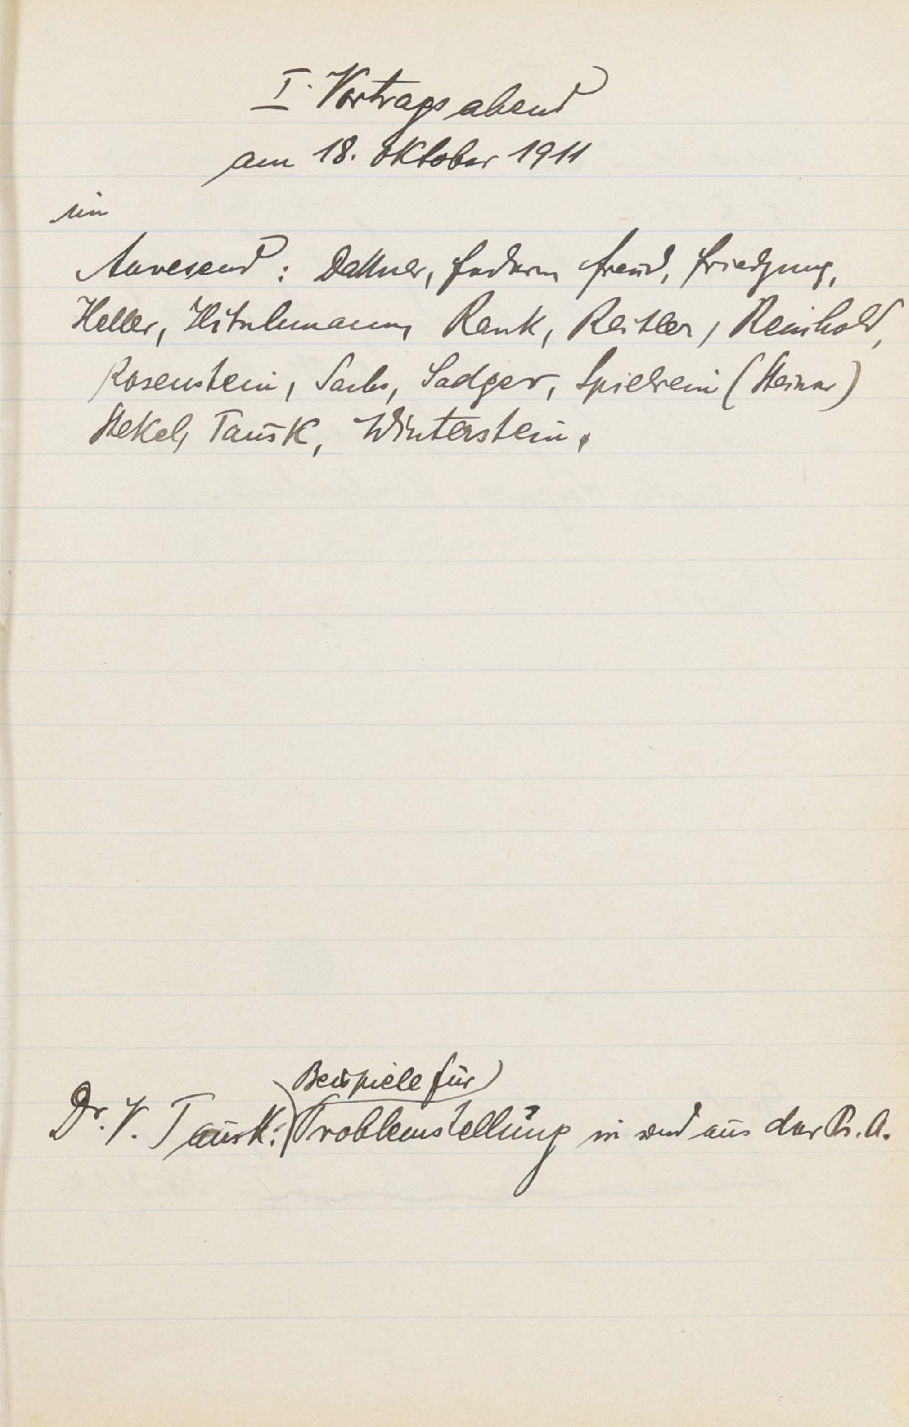 I. Vortragsabend
am 18. Oktober 1911
im
Anwesend: Dattner, Federn, Freud, Friedjung,
Heller, Hitschmann, Rank, Reitler, Reinhold,
Rosenstein, Sachs, Sadger, Spielrein (Steiner)
Stekel, Tausk, Winterstein.
Beispiele für
Dr. V. Tausk: Problemstellung in und aus der Ps. A.